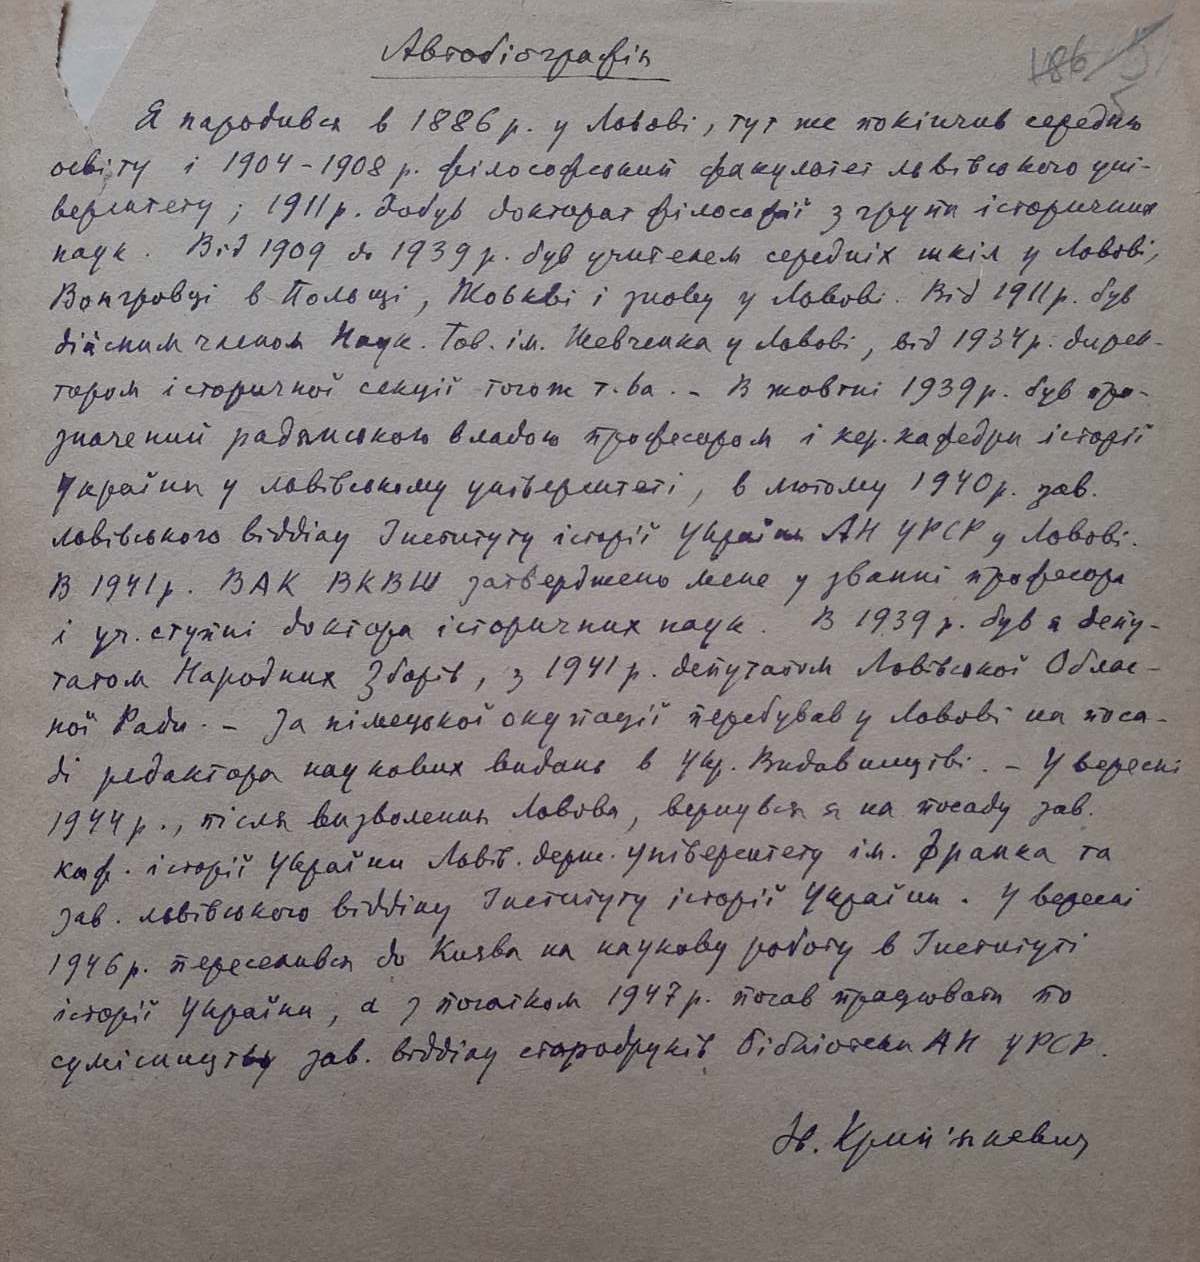 Автобіографія
186 5
5
Я народився в 1886 р. у Львові, тут же покінчив середню
освіту і 1904-1908 р. філософський факультет львівського уні-
верситету; 1911 р. добув докторат філософії з групи історичних
наук. Від 1909 до 1939 р. був учителем середніх шкіл у Львові,
Вонгровці в Польщі, Жовкві і знову у Львові. Від 1911 р. був
дійсним членом Наук. Тов. ім. Шевченка у Львові, від 1934 р. дирек-
тором історичної секції того ж т-ва. – В жовтні 1939 р. був при-
значений радянською владою професором і кер. кафедри історії
України у львівському університеті, в лютому 1940 р. зав.
львівського відділу Інституту історії України АН УРСР у Львові.
В 1941 р. ВАК ВКВШ затверджено мене у званні професора
і уч. ступні доктора історичних наук. В 1939 р. був я депу-
татом Народних Зборів, з 1941 р. депутатом Львівської Облас-
ної Ради. – За німецької окупації перебував у Львові на поса-
ді редактора наукових видань в Укр. Видавництві. – У вересні
1944 р., після визволення Львова, вернувся я на посаду зав.
каф. історії України Львів. держ. університету ім. Франка та
зав. львівського відділу Інституту історії України. У вересні
1946 р. переселився до Києва на наукову роботу в Інституті
історії України, а з початком 1947 р. почав працювати по
сумісництву зав. відділу стародруків Бібліотеки АН УРСР.
Ів. Крип'якевич